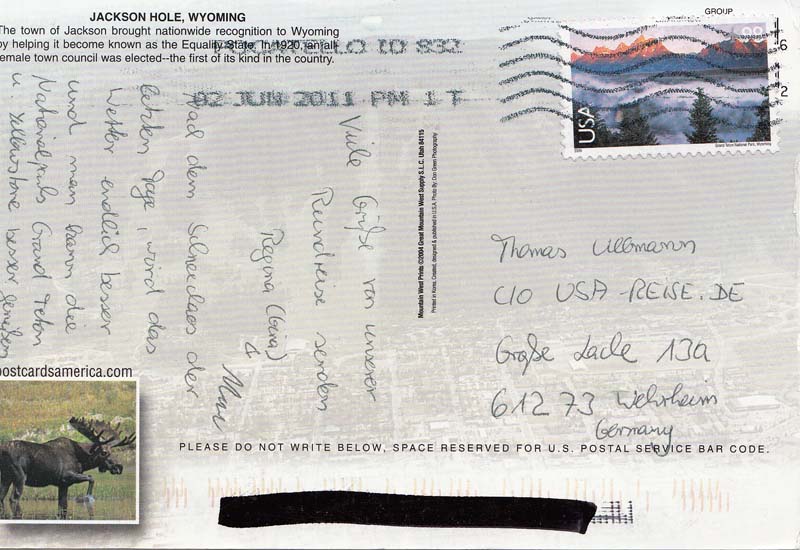 JACKSON HOLE, WYOMING
The town of Jackson brought nationwide recognition to Wyoming
by helping it become known as the Equality State. In 1920, an all
emale town council was elected--the first of its kind in the country.
POCATELLO ID 832
02 JUN 2011 PM 1 T
GROUP
USA
98
Grand Teton National Park, Wyoming
Viele Grüße von unserer
Rundreise senden
Regina (Gina)
Nach dem Schneechaos der
letzten Tage, wird das
Wetter endlich besser
und man kann die
Nationalparks Grand Teton
u Yellowstone besser genießen
Mountain West Prints ©2004 Great Mountain West Supply S.L.C. Utah 84115
Printed in Korea. Created, designed & published in U.S.A. Photo By: Don Green Photography
Thomas Ullmann
C/O USA-REISE.DE
Große Lache 13a
61273 Wehrheim
Germany
postcardsamerica.com
PLEASE DO NOT WRITE BELOW, SPACE RESERVED FOR U.S. POSTAL SERVICE BAR CODE.